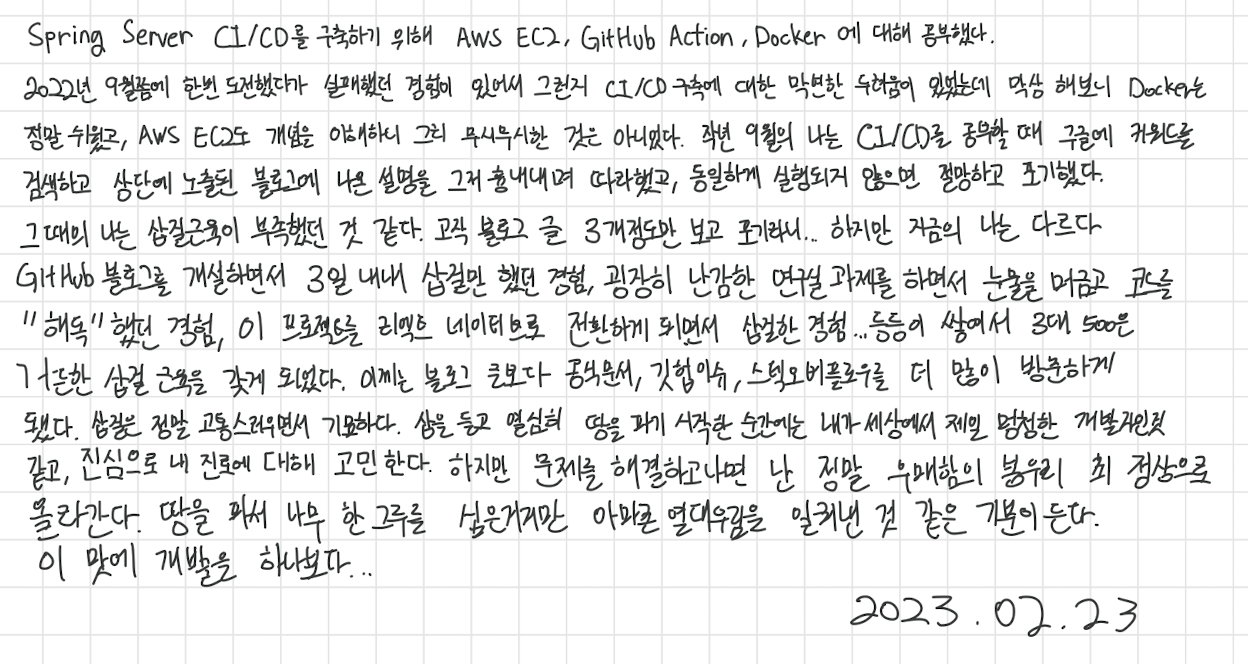 Spring Server CI/CD를 구축하기 위해 AWS EC2, GitHub Action, Docker 에 대해 공부했다.
2022년 9월쯤에 한번 도전했다가 실패했던 경험이 있어서 그런지 CI/CD 구축에 대한 막연한 두려움이 있었는데 막상 해보니 Docker는
정말 쉬웠고, AWS EC2도 개념을 이해하니 그리 무시무시한 것은 아니었다. 작년 9월의 나는 CI/CD를 공부할 때 구글에 키워드를
검색하고 상단에 노출된 블로그에 나온 설명을 그저 흉내내며 따라했고, 동일하게 실행되지 않으면 절망하고 포기했다.
그때의 나는 삽질근육이 부족했던 것 같다. 고작 블로그 글 3개정도만 보고 포기라니... 하지만 지금의 나는 다르다
GitHub 블로그를 개설하면서 3일 내내 삽질만 했던 경험, 굉장히 난감한 연구실 과제를 하면서 눈물을 머금고 코드를
"해독"했던 경험, 이 프로젝트를 리액트 네이티브로 전환하게 되면서 삽질한 경험...등등이 쌓여서 3대 500은
거뜬한 삽질 근육을 갖게 되었다. 이제는 블로그 글보다 공식문서, 깃헙이슈, 스택오버플로우를 더 많이 방문하게
됐다. 삽질은 정말 고통스러우면서 기묘하다. 삽을 들고 열심히 땅을 파기 시작한 순간에는 내가 세상에서 제일 멍청한 개발자인것
같고, 진심으로 내 진로에 대해 고민한다. 하지만 문제를 해결하고나면 난 정말 우매함의 봉우리 최 정상으로
올라간다. 땅을 파서 나무 한 그루를 심은거지만 아마존 열대우림을 일궈낸 것 같은 기분이 든다.
이 맛에 개발을 하나보다...
2023.02.23